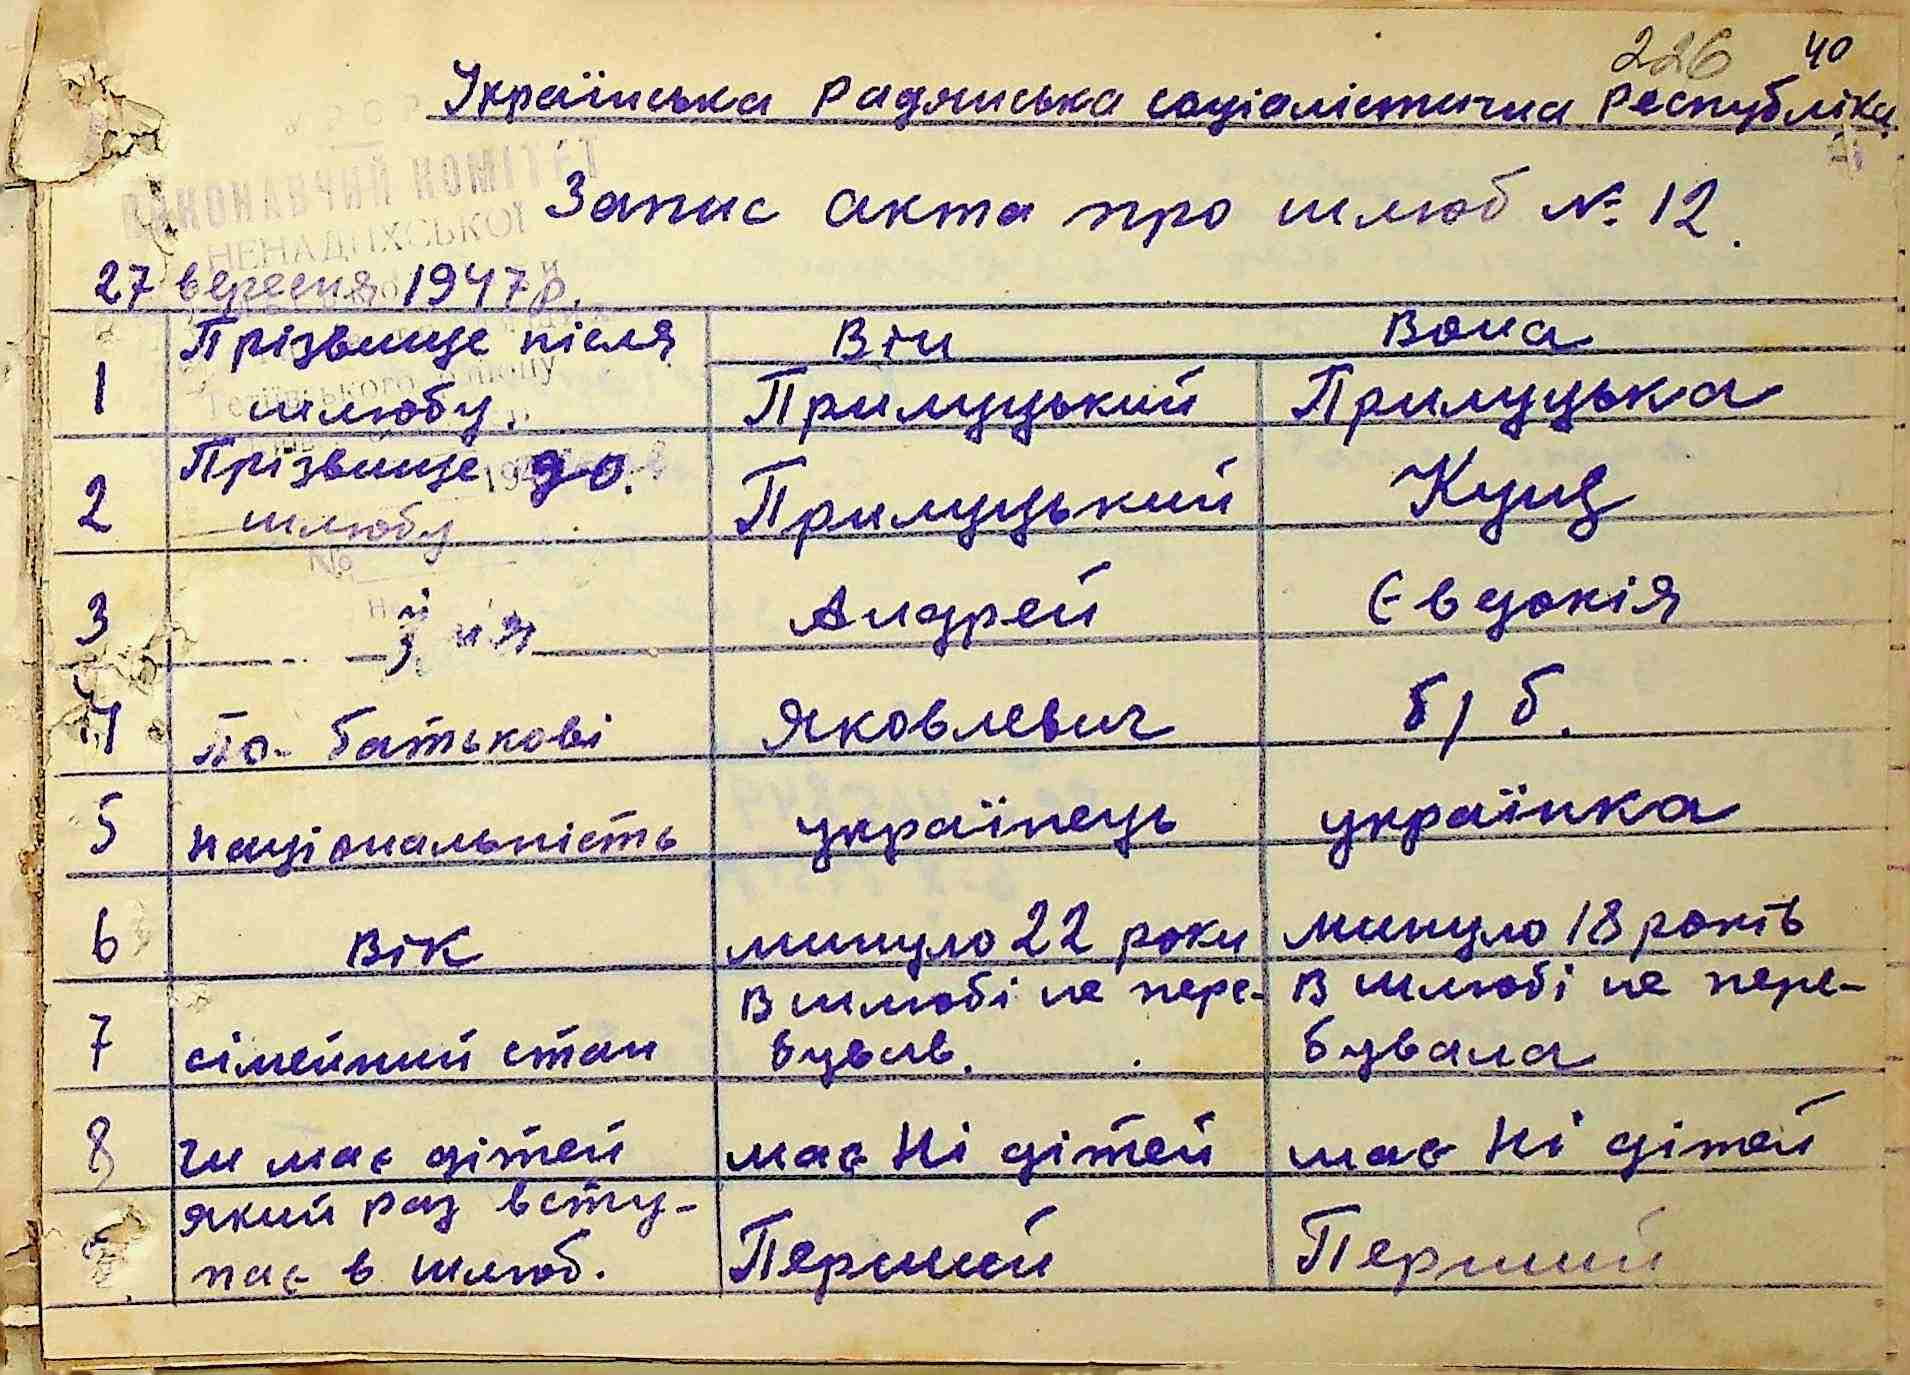 226 40
Українська Радянська соціалістична Республіка
ВИКОНАВЧИЙ КОМІТЕТ
НЕНАДИХСЬКОЇ
Запис акта про шлюб № 12.
27 вересня 1947 р.
1 Прізвище після шлюбу. Він Вона
Прилуцький Прилуцька
2 Прізвище до. шлюбу Прилуцький Кущ
3 Ім'я Андрей Євдокія
4 По-батькові Яковлевич б/б.
5 національність українець українка
6 Вік минуло 22 роки минуло 18 років
7 сімейний стан В шлюбі не пере- В шлюбі не пере-
бував. бувала
8 чи має дітей має Ні дітей має Ні дітей
який раз всту-
пає в шлюб. Перший Перший